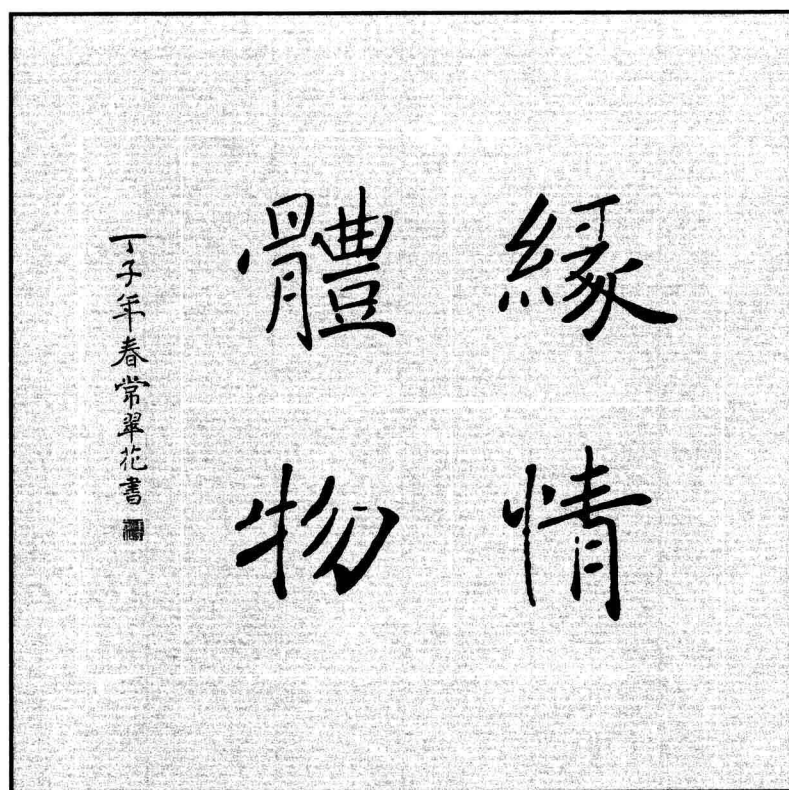 緣情
體物
丁子年春常翠花書